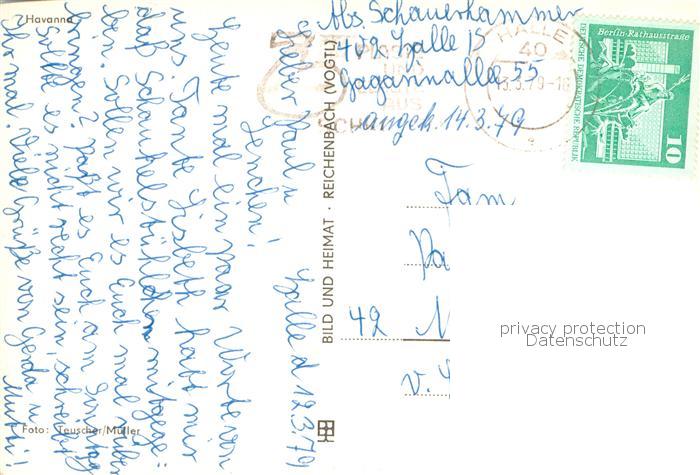 Havanna
Halle d 12.3.79
Lieber Paul u
Gerchen!
Heute mal ein paar Worte von
uns. Tante Lisbeth hatt mir
daß Schaukelstühlchen mitgege-
ben. Sollen wir es Euch mal rüber
bringen? Paßt es Euch am Freitag
Sollte es nicht recht sein, schreibt
ihr mal. Viele Grüße von Gerda u
Mutti!
Foto: Teuscher/Müller
BILD UND HEIMAT · REICHENBACH (VOGTL)
Abs. Schauerhammer
402 Halle 15
Gagarinallee 55
angek. 14.3.79
HALLE
40
13.3.79-18
Berlin-Rathausstraße
DEUTSCHE DEMOKRATISCHE REPUBLIK
10
Fam
Pa
42 M
v.
privacy protection
Datenschutz